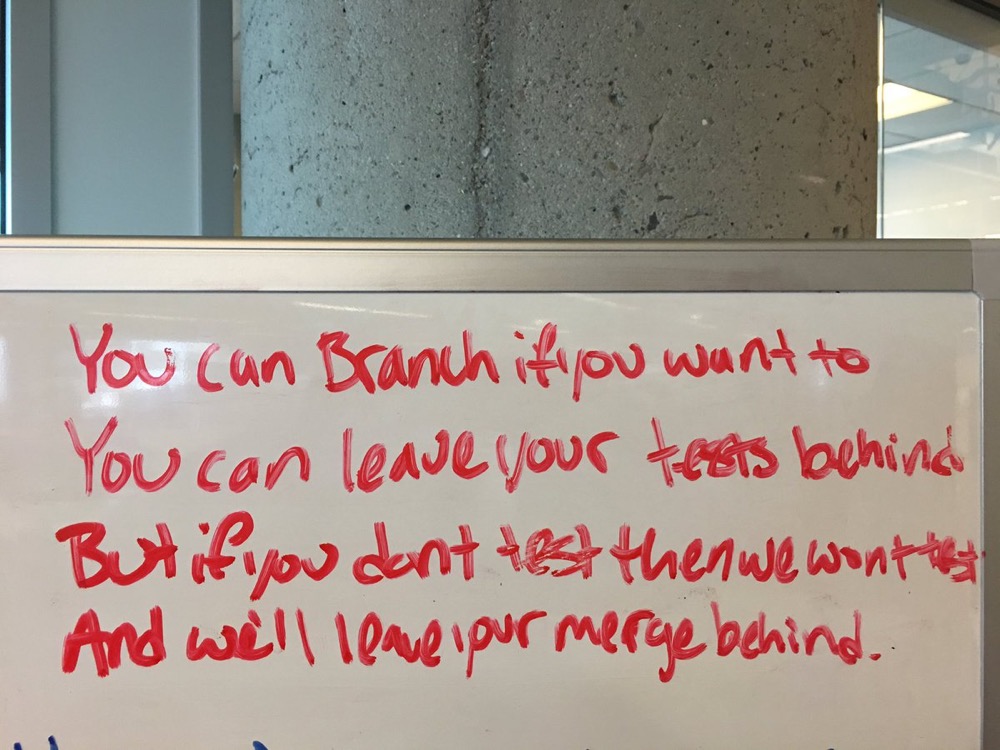 You can Branch if you want to
You can leave your tests behind
But if you dont test then we wont test
And we'll leave your merge behind.